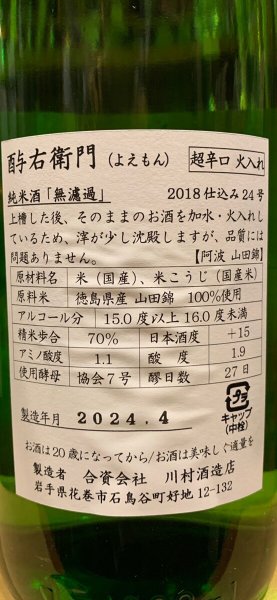 酉与右衛門(よえもん) 超辛口 火入れ
純米酒「無濾過」 2018仕込み24号
上槽した後、そのままのお酒を加水・火入れし
ているため、滓が少し沈殿しますが、品質には
問題ありません。 【阿波 山田錦】
原材料名 米(国産)、米こうじ(国産米)
原料米 徳島県産 山田錦 100%使用
アルコール分 15.0 度以上 16.0 度未満
精米歩合 70% 日本酒度 +15
アミノ酸度 1.1 酸度 1.9
使用酵母 協会7号 醪日数 27日
製造年月 2024.4
キャップ
(中栓)
お酒は20歳になってから/お酒は美味しく適量を
製造者 合資会社 川村酒造店
岩手県花巻市石鳥谷町好地 12-132